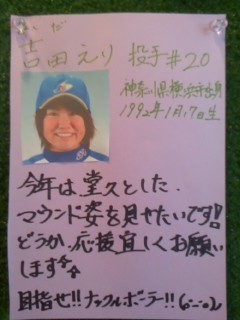 吉田えり 投手#20
神奈川県横浜市出身
1992年1月17日生
今年は、堂々とした
マウンド姿を見せたいです!!
どうか、応援宜しくお願い
します☆☆
目指せ!!ナックルボーラー!!